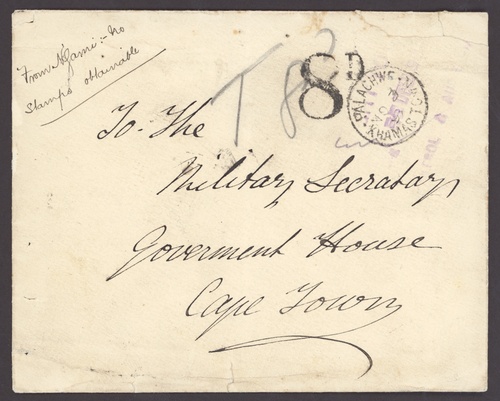 From N'Gami:- No
Stamps obtainable
T 8d
8D
PALACHWE
KHAMAS T
To. The
Military Secretary
Goverment House
Cape Town